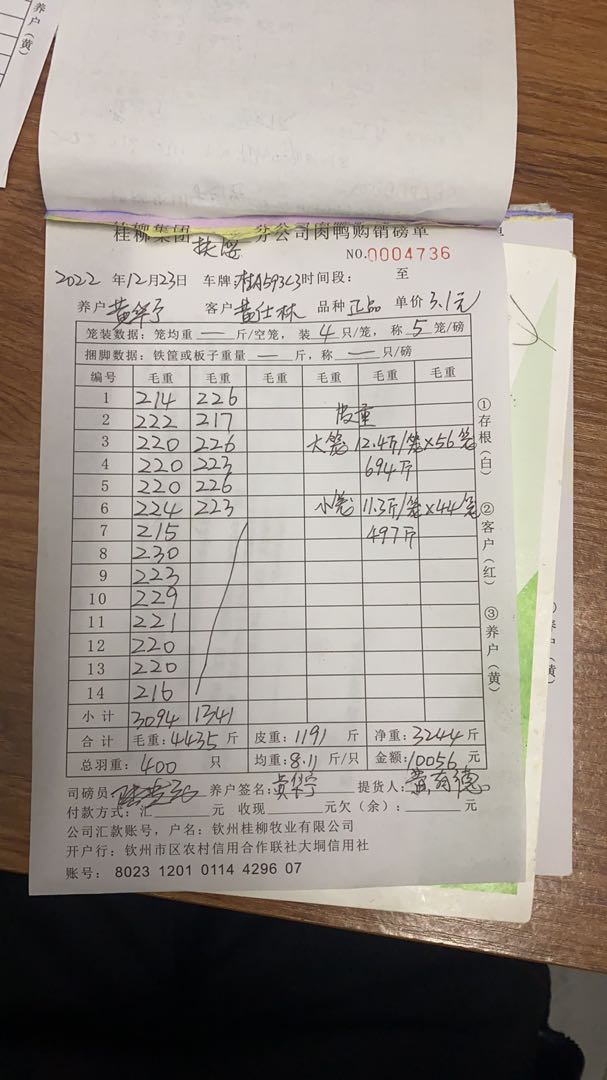 养户（黄）
桂柳集团 扶绥 分公司肉鸭购销磅单
单
NO.0004736
2022 年12月23日 车牌 桂A593C3 时间段： 至
养户 客户 黄仕林 品种 正品 单价 3.1元
笼装数据：笼均重 — 斤/空笼，装 4 只/笼，称 5 笼/磅
捆脚数据：铁筐或板子重量 — 斤，称 — 只/磅
编号 毛重 毛重 毛重 毛重 毛重 毛重
1 214 226
2 222 217 皮重
3 220 226 大笼 12.4斤/笼×56笼
4 220 223 694斤
5 220 226
6 224 223 小笼 11.3斤/笼×44笼
7 215 497斤
8 230
9 223
10 229
11 221
12 220
13 220
14 216
小计 3094 1341
合计 毛重：4435 斤 皮重：1191 斤 净重：3244 斤
总羽重：400 只 均重：8.11 斤/只 金额：10056 元
①存根（白）
②客户（红）
③养户（黄）
司磅员 养户签名：黄华宁 提货人：
付款方式：汇 元 收现 元欠（余）： 元
公司汇款账号，户名：钦州桂柳牧业有限公司
开户行：钦州市区农村信用合作联社大垌信用社
账号：8023 1201 0114 4296 07